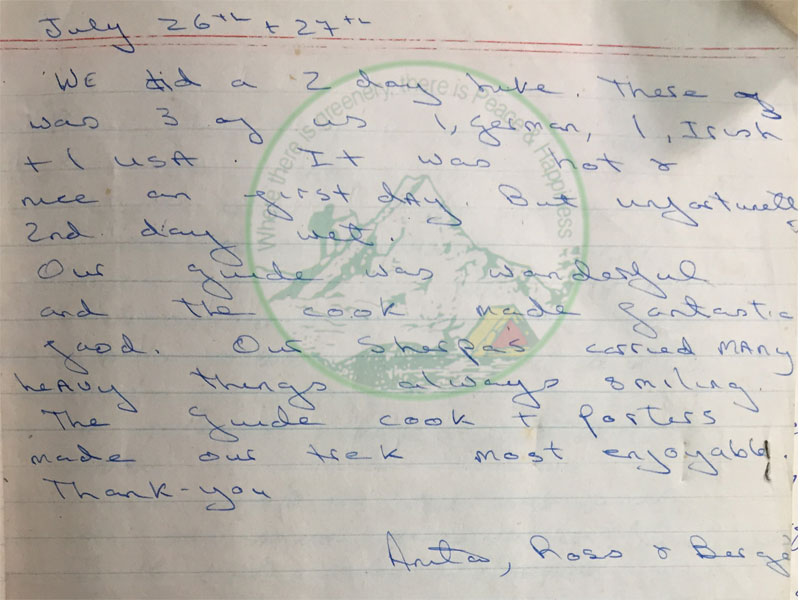 July 26th + 27th
WE did a 2 day hike. There
was 3 of us 1, German, 1, Irish
+ 1 USA. It was hot &
nice on first day. But unfortunetly
2nd day wet.
Our guide was wonderful
and the cook made fantastic
food. Our Sherpas carried MANY
heavy things always smiling.
The guide cook + porters
made our trek most enjoyable.
Thank-you
Anita, Ross &
Where there is greenery, there is Peace & Happiness